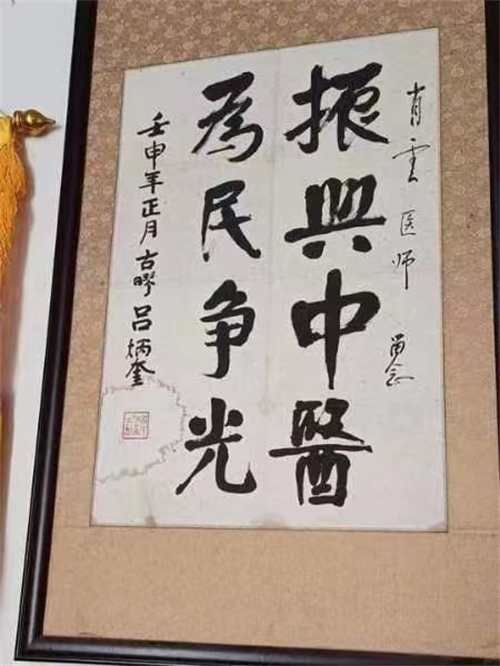 肖云医师 留念
振興中醫
為民争光
壬申年正月 古疁 吕炳奎